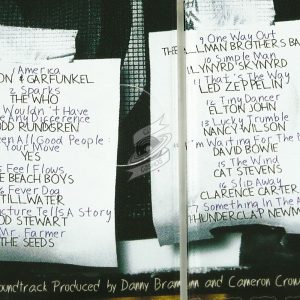 1 America
ON & GARFUNKEL
2 Sparks
THE WHO
Wouldn't Have
Any Difference
DD RUNDGREN
en All Good People:
Your Move
YES
Feel Flows
E BEACH BOYS
6 Fever Dog
TILLWATER
icture Tells A Story
OD STEWART
Mr. Farmer
THE SEEDS
9 One Way Out
THE ALLMAN BROTHERS BA
10 Simple Man
LYNYRD SKYNYRD
11 That's The Way
LED ZEPPELIN
12 Tiny Dancer
ELTON JOHN
13 Lucky Trumble
NANCY WILSON
I'm Waiting For The
DAVID BOWIE
15 The Wind
CAT STEVENS
16 Slip Away
CLARENCE CARTER
7 Something In The A
THUNDERCLAP NEWM
oundtrack Produced by Danny Bramson and Cameron Crow